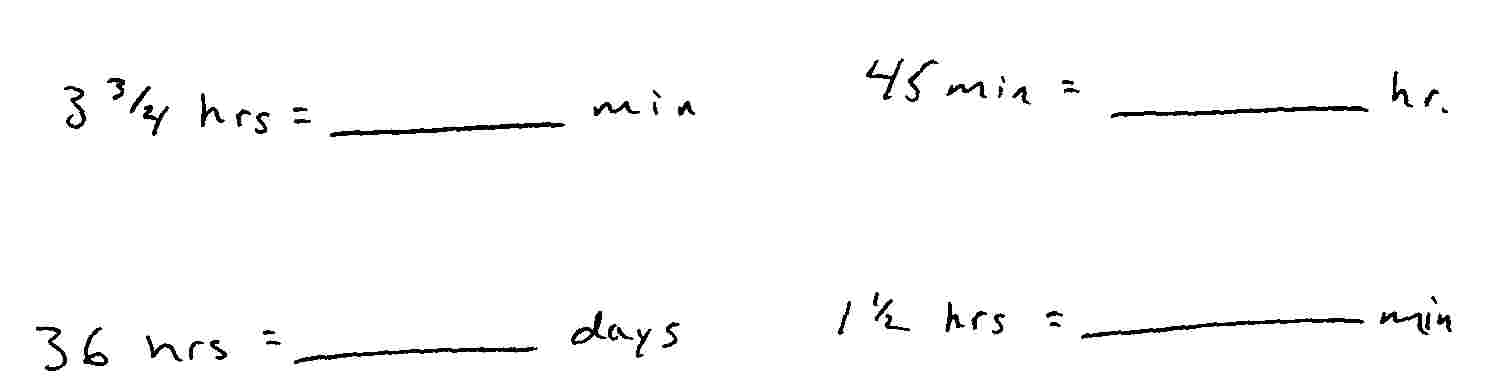 3 3/4 hrs = ________ min
45 min = ________ hr.
36 hrs = ________ days
1 1/2 hrs = ________ min